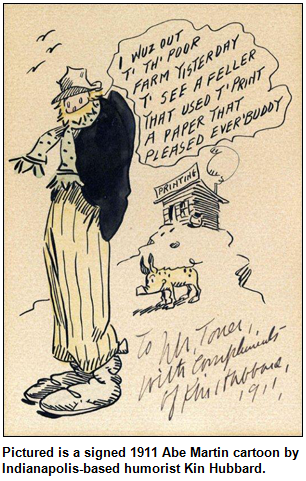 I WUZ OUT
T' TH' POOR
FARM YISTERDAY
T' SEE A FELLER
THAT USED T' PRINT
A PAPER THAT
PLEASED EVER'BUDDY
PRINTING
To Mr. Toner,
with Compliments
of Kin Hubbard,
1911,
Pictured is a signed 1911 Abe Martin cartoon by
Indianapolis-based humorist Kin Hubbard.